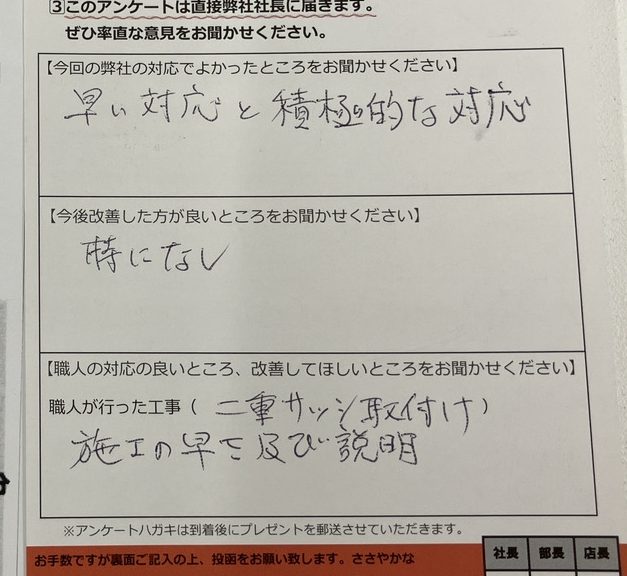 ③このアンケートは直接弊社社長に届きます。
ぜひ率直な意見をお聞かせください。
【今回の弊社の対応でよかったところをお聞かせください】
早い対応と積極的な対応
【今後改善した方が良いところをお聞かせください】
特になし
【職人の対応の良いところ、改善してほしいところをお聞かせください】
職人が行った工事（二重サッシ取付け）
施工の早さ及び説明
※アンケートハガキは到着後にプレゼントを郵送させていただきます。
お手数ですが裏面ご記入の上、投函をお願い致します。ささやかな
社長 部長 店長